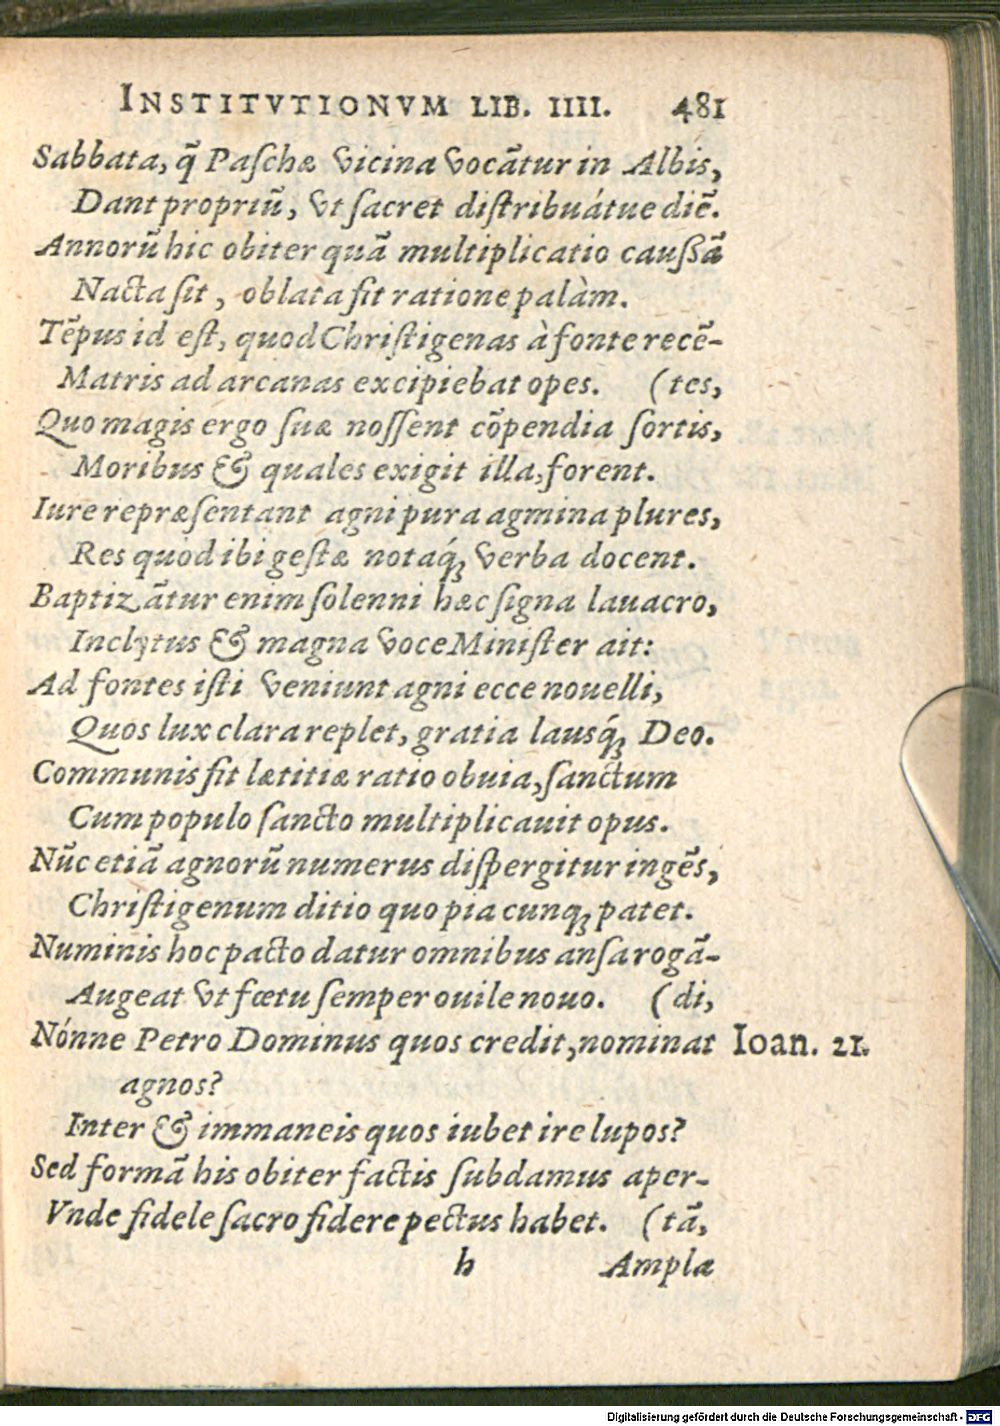 INSTITVTIONVM LIB. IIII. 481
Sabbata, q̃ Paſchæ vicina vocãtur in Albis,
Dant propriũ, vt ſacret diſtribuátue diẽ.
Annorũ hic obiter quã multiplicatio cauſſã
Nacta ſit, oblata ſit ratione palàm.
Tẽpus id eſt, quod Chriſtigenas à fonte recẽ-
Matris ad arcanas excipiebat opes. (tes,
Quo magis ergo ſuæ noſſent cõpendia ſortis,
Moribus & quales exigit illa, forent.
Iure repræſentant agni pura agmina plures,
Res quòd ibi geſtæ notaq́; verba docent.
Baptizãtur enim ſolenni hæc ſigna lauacro,
Inclytus & magna voce Miniſter ait:
Ad fontes iſti veniunt agni ecce nouelli,
Quos lux clara replet, gratia lausq́; Deo.
Communis fit lætitiæ ratio obuia, ſanctum
Cum populo ſancto multiplicauit opus.
Nũc etiã agnorũ numerus diſpergitur ingẽs,
Chriſtigenum ditio quo pia cunq; patet.
Numinis hoc pacto datur omnibus anſa rogã-
Augeat vt fœtu ſemper ouile nouo. (di,
Nónne Petro Dominus quos credit, nominat Ioan. 21.
agnos?
Inter & immaneis quos iubet ire lupos?
Sed formã his obiter factis ſubdamus aper-
Vnde fidele ſacro fidere pectus habet. (tã,
h Amplæ
Digitalisierung gefördert durch die Deutsche Forschungsgemeinschaft - DFG